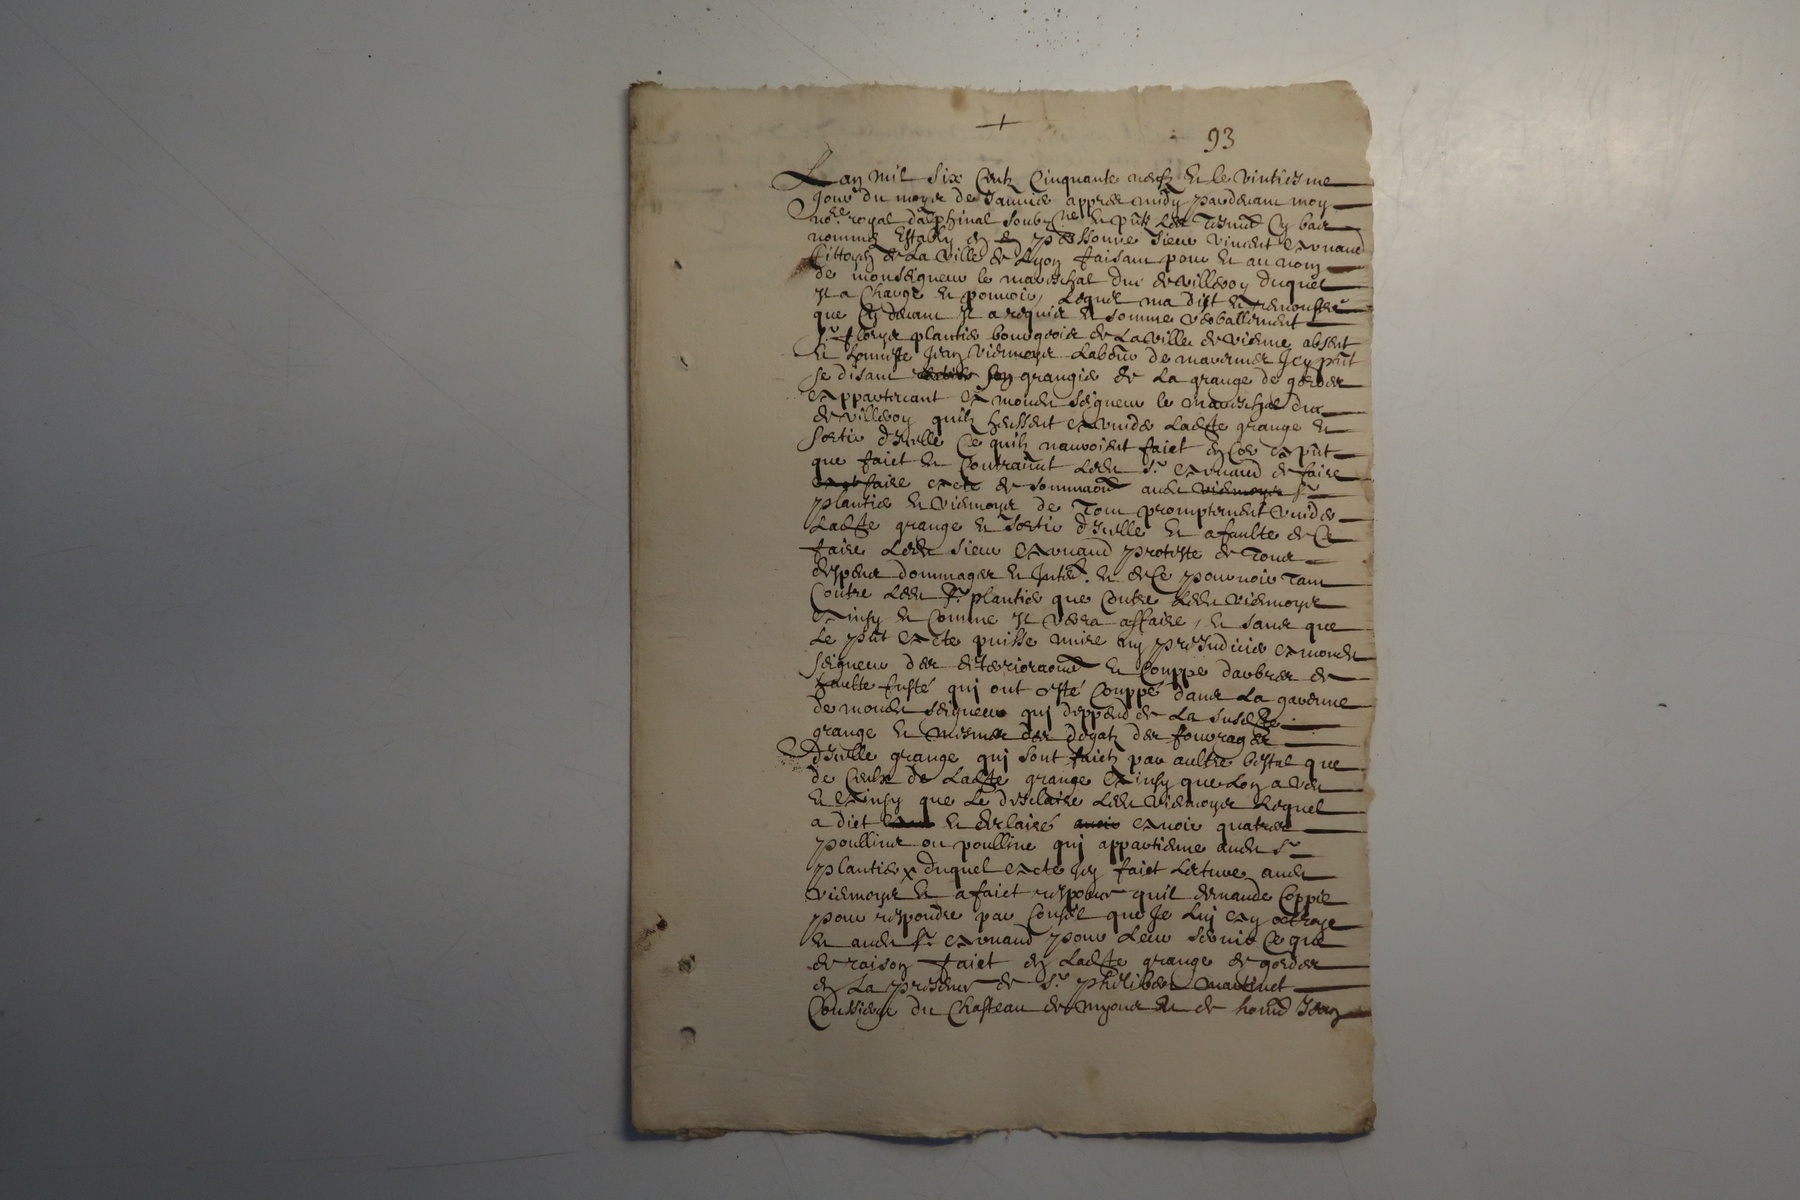 93
Lan mil six centz cinquante neufz et le vintiesme
jour du moys de janvier appres midy pardevant moy
no.re royal daphinal soubz.ne et pñtz les tesmᵗ cy bas
nommés estably en en personne sieur vincent arnaud
cittoyen de la ville de Lyon faisant pour et au nom
de monseigneur le mareschal duc de villeroy duquel
jl a charge et pouvoir, lequel ma dist et remonstre
que cy devant jl a requis et somme verballement
sr. plantier bourgeois de la ville de vienne absent
et honneste jean viermoys labeur de jcy pñt
se disant grangier de la grange de
appartenant a monde seigneur le mareschal duc
de villeroy quilz heussent a vuider ladtte grange et
sortir djcelle ce quilz nauroient faict
que faict et contrainct ledt sr. arnaud de faire
faire acte de sommaon audt viermoys sr
plantier et viermoys de tout promptement vuider
ladtte grange et sortir djcelle et a faulte de ce
faire ledt sieur arnaud proteste de tous
despens dommages et jnte. et de ce pourvoir tant
contre ledt sr. plantier que contre ledt viermoys
ainsy et comme jl verra affaire, et sans que
le pñt acte puisse nuire ny prejudicier a monde
seigneur des deterioraons et couppe darbres de
haulte fusté qui ont esté couppé dans la garenne
de monde seigneur qui deppend de la susdtte
grange et mesmes des degatz des fourrages
djcelle grange qui sont faictz par aultre bestal que
de ceulx de ladtte grange ainsy que lon a veu
et ainsy que le declaire ledt viermoys lequel
a dict et declairé avoir quatres
poullins ou pouline qui appartienne audt sr
plantier x duquel acte jay faict lecture audt
viermoys et a faict respons quil demande coppie
pour respondre par conseil que je luj ay octroye
et audt sr. arnaud pour leur servir ce que
de raison faict en ladtte grange de
en la presence de sr. philibert martinet
conssierge du chasteau de et de jean